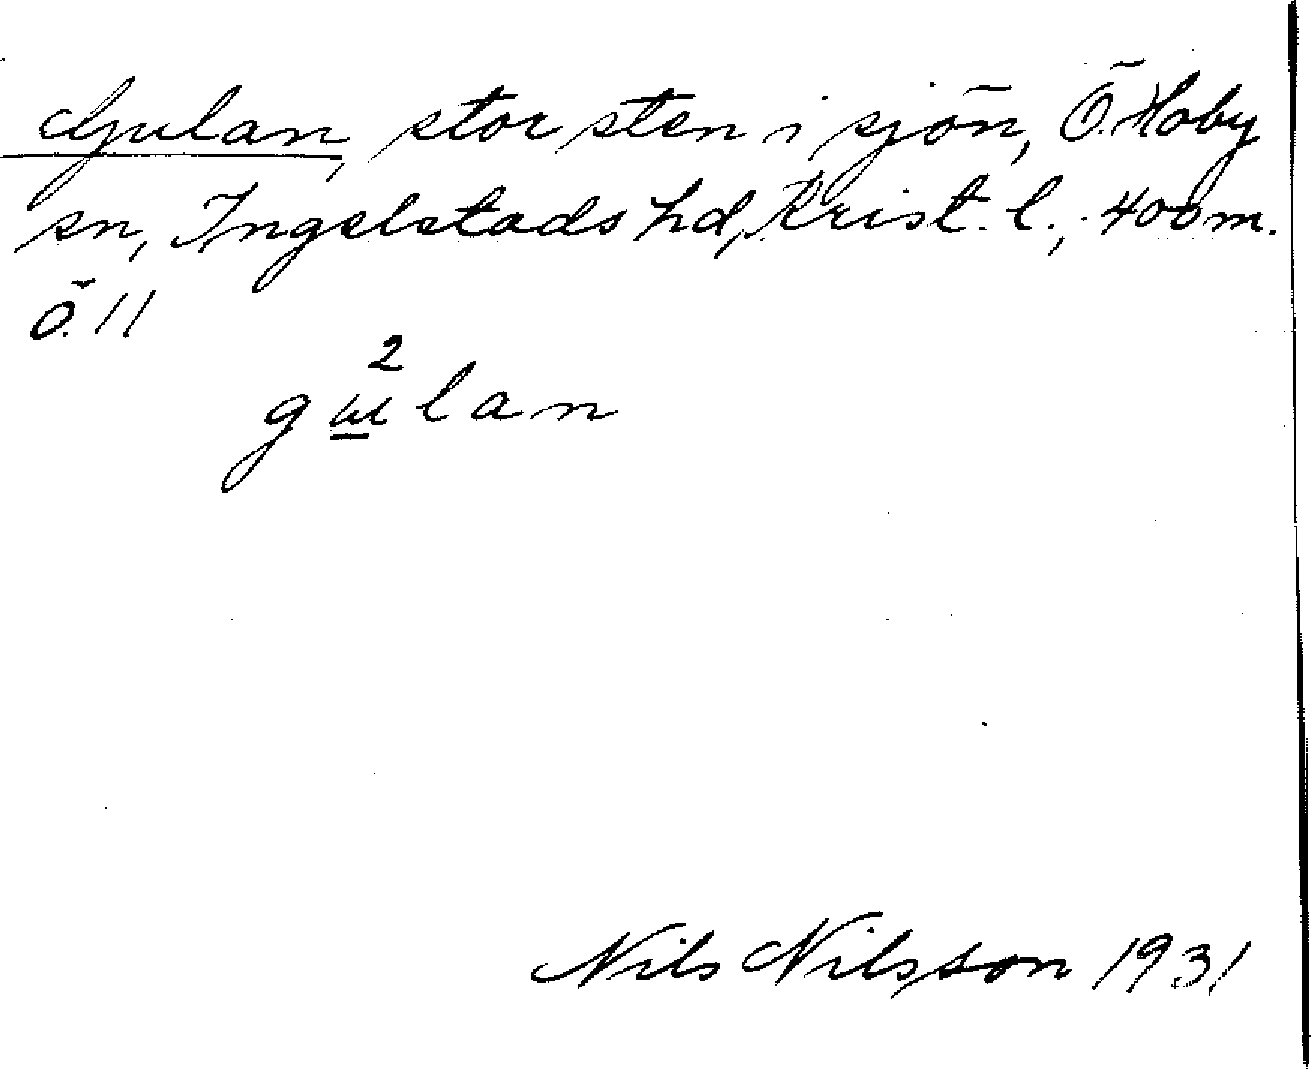 Gulan, stor sten i sjön, Ö. Hoby
sn, Ingelstads hd, Krist. l., 400 m.
Ö. 11
2
gɯlan
Nils Nilsson 1931